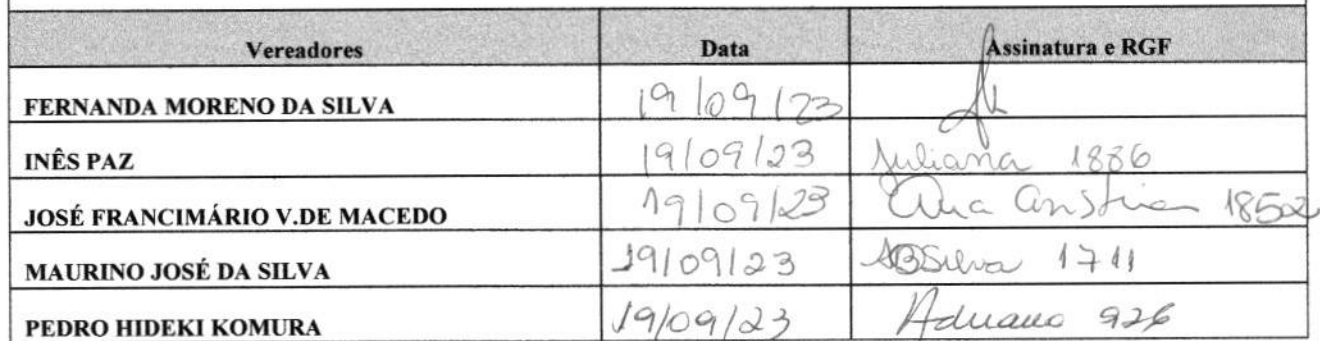 Vereadores Data Assinatura e RGF
FERNANDA MORENO DA SILVA 19/09/23
INÊS PAZ 19/09/23 Juliana 1886
JOSÉ FRANCIMÁRIO V.DE MACEDO 19/09/23 Ana Cristina 1852
MAURINO JOSÉ DA SILVA 19/09/23 ABSilva 1711
PEDRO HIDEKI KOMURA 19/09/23 Adriana 926